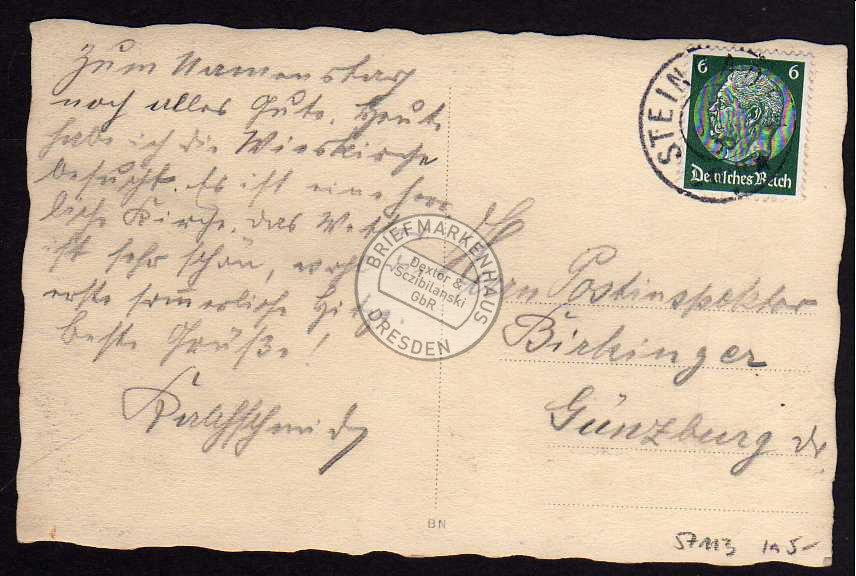 Zum Namenstag
noch alles Gute. Heute
habe ich die Wieskirche
besucht. Es ist eine herr-
liche Kirche. das Wetter
ist sehr schön, wohl
erste sommerliche Hitze.
beste Grüße!
Herrn Postinspektor
Birkinger
Günzburg
STEIN
6 6
Deutsches Reich
BRIEFMARKENHAUS
Dexter &
Sczibilanski
GbR
DRESDEN
BN
57113 1a 5-